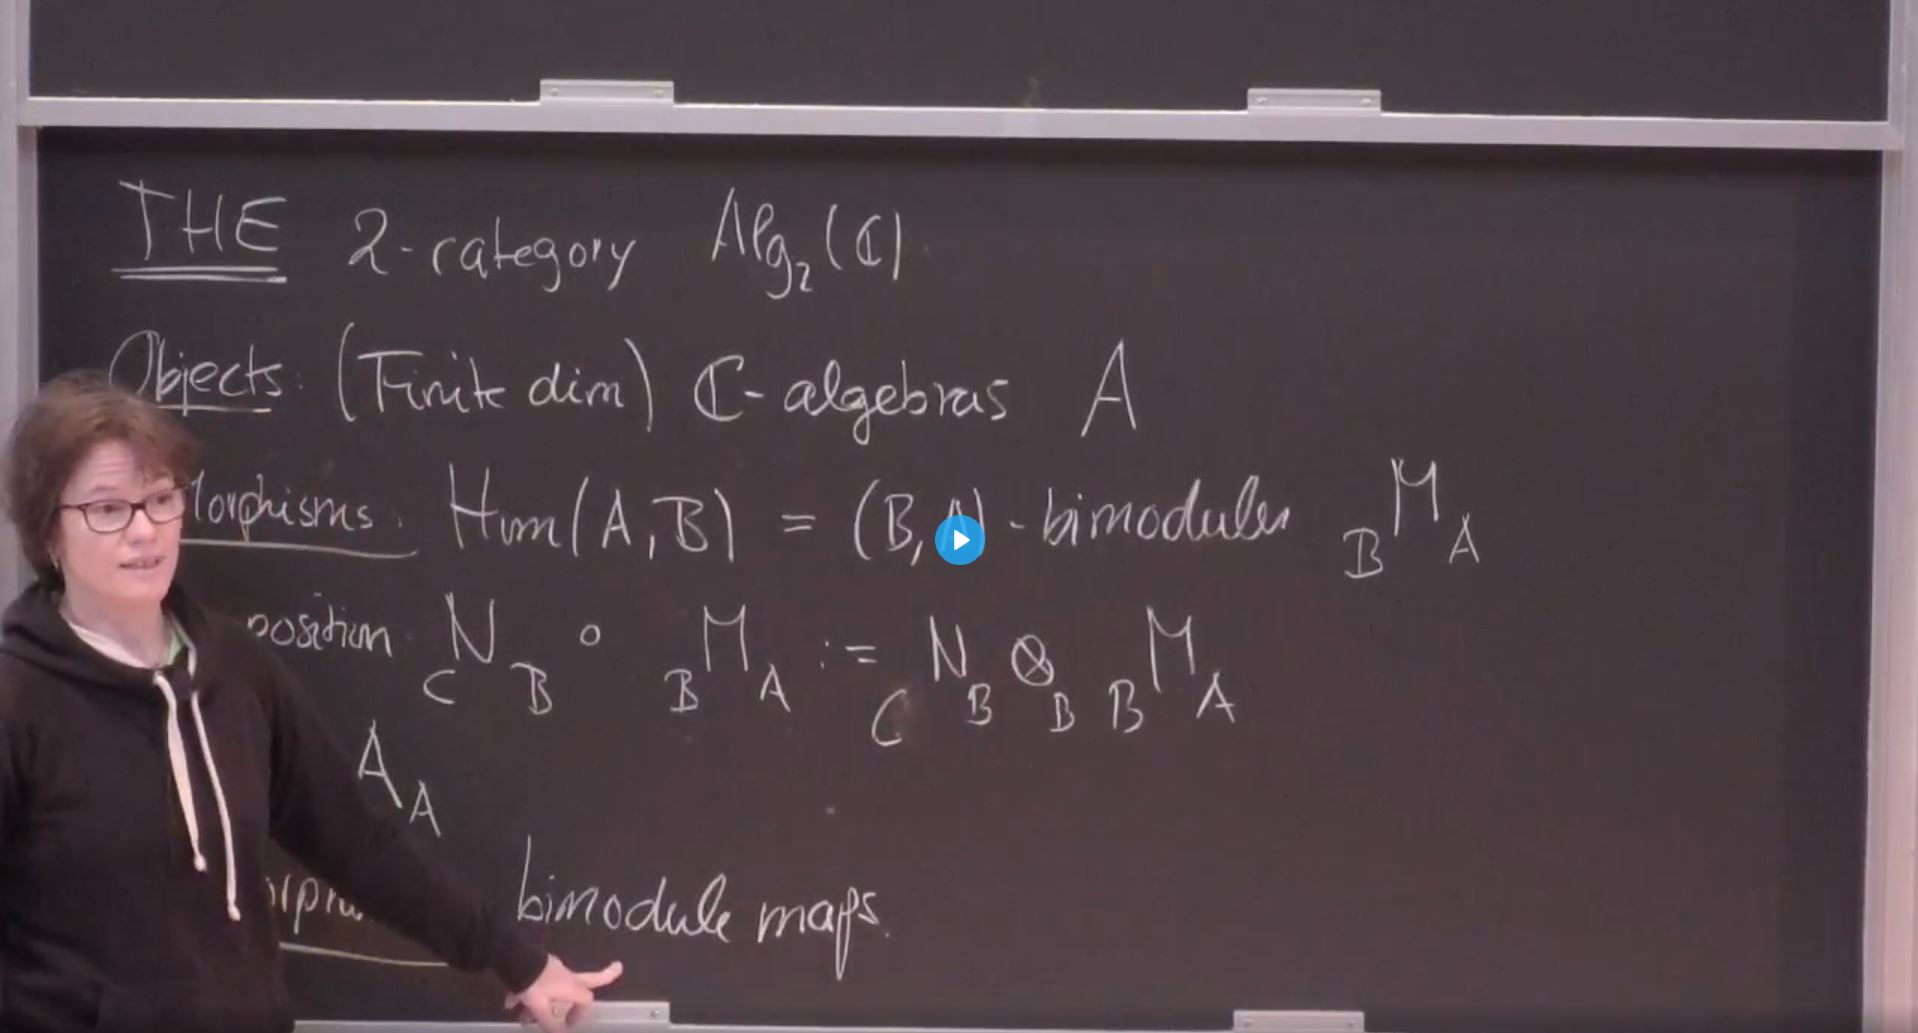 THE 2-category Alg₂(ℂ)
Objects: (Finite dim) ℂ-algebras A
Morphisms: Hom(A,B) = (B,A)-bimodules _B M_A
position _C N_B ∘ _B M_A := _C N_B ⊗_B _B M_A
A_A
bimodule maps.